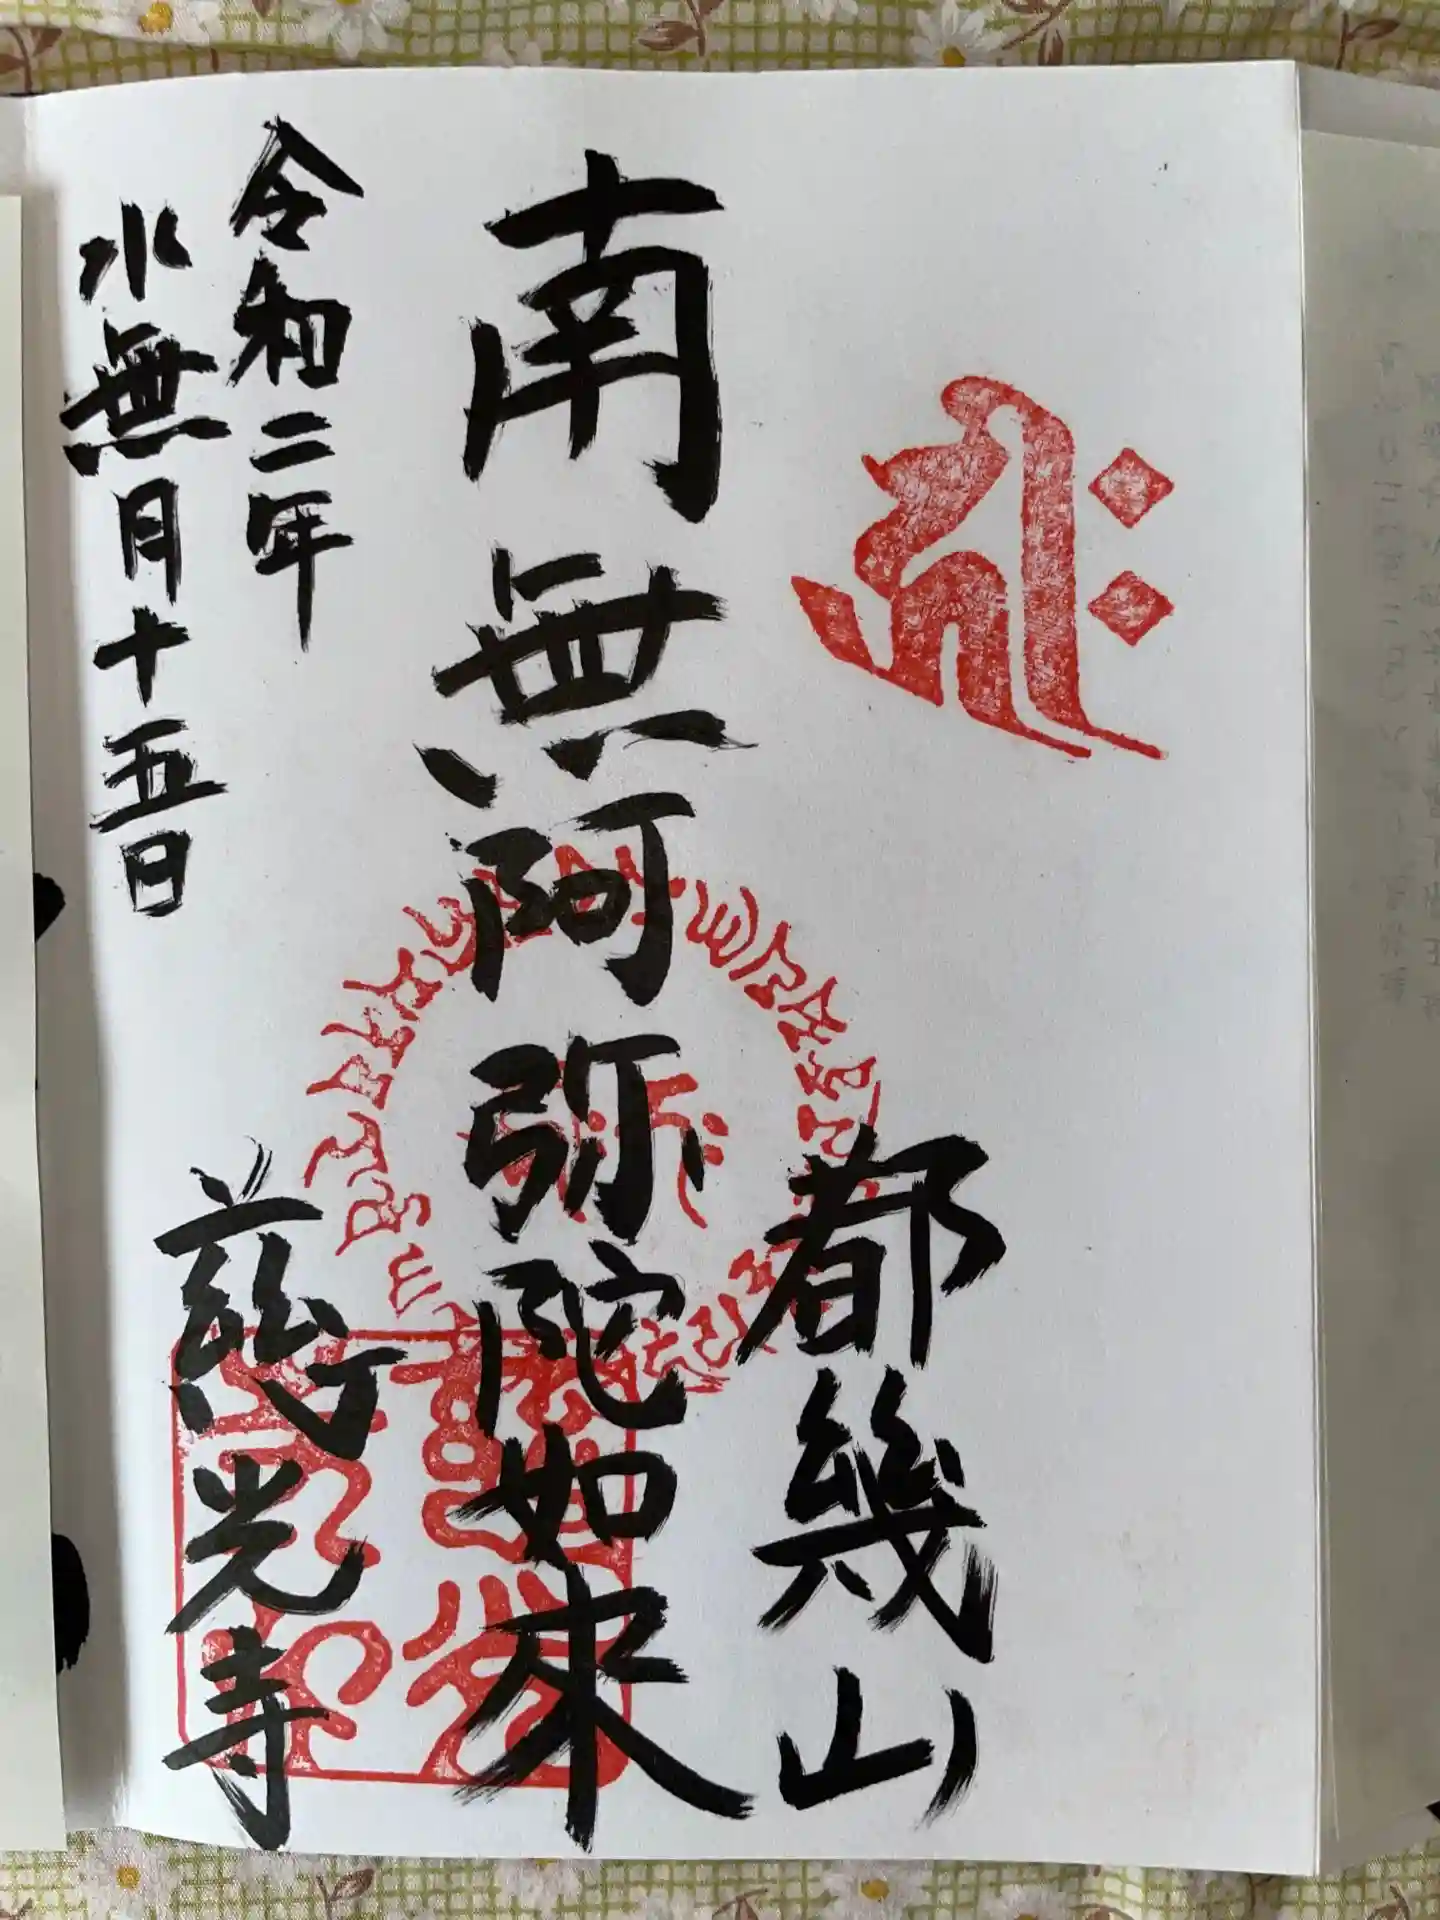 都幾山
南無阿弥陀如来
令和二年
水無月十五日
慈光寺